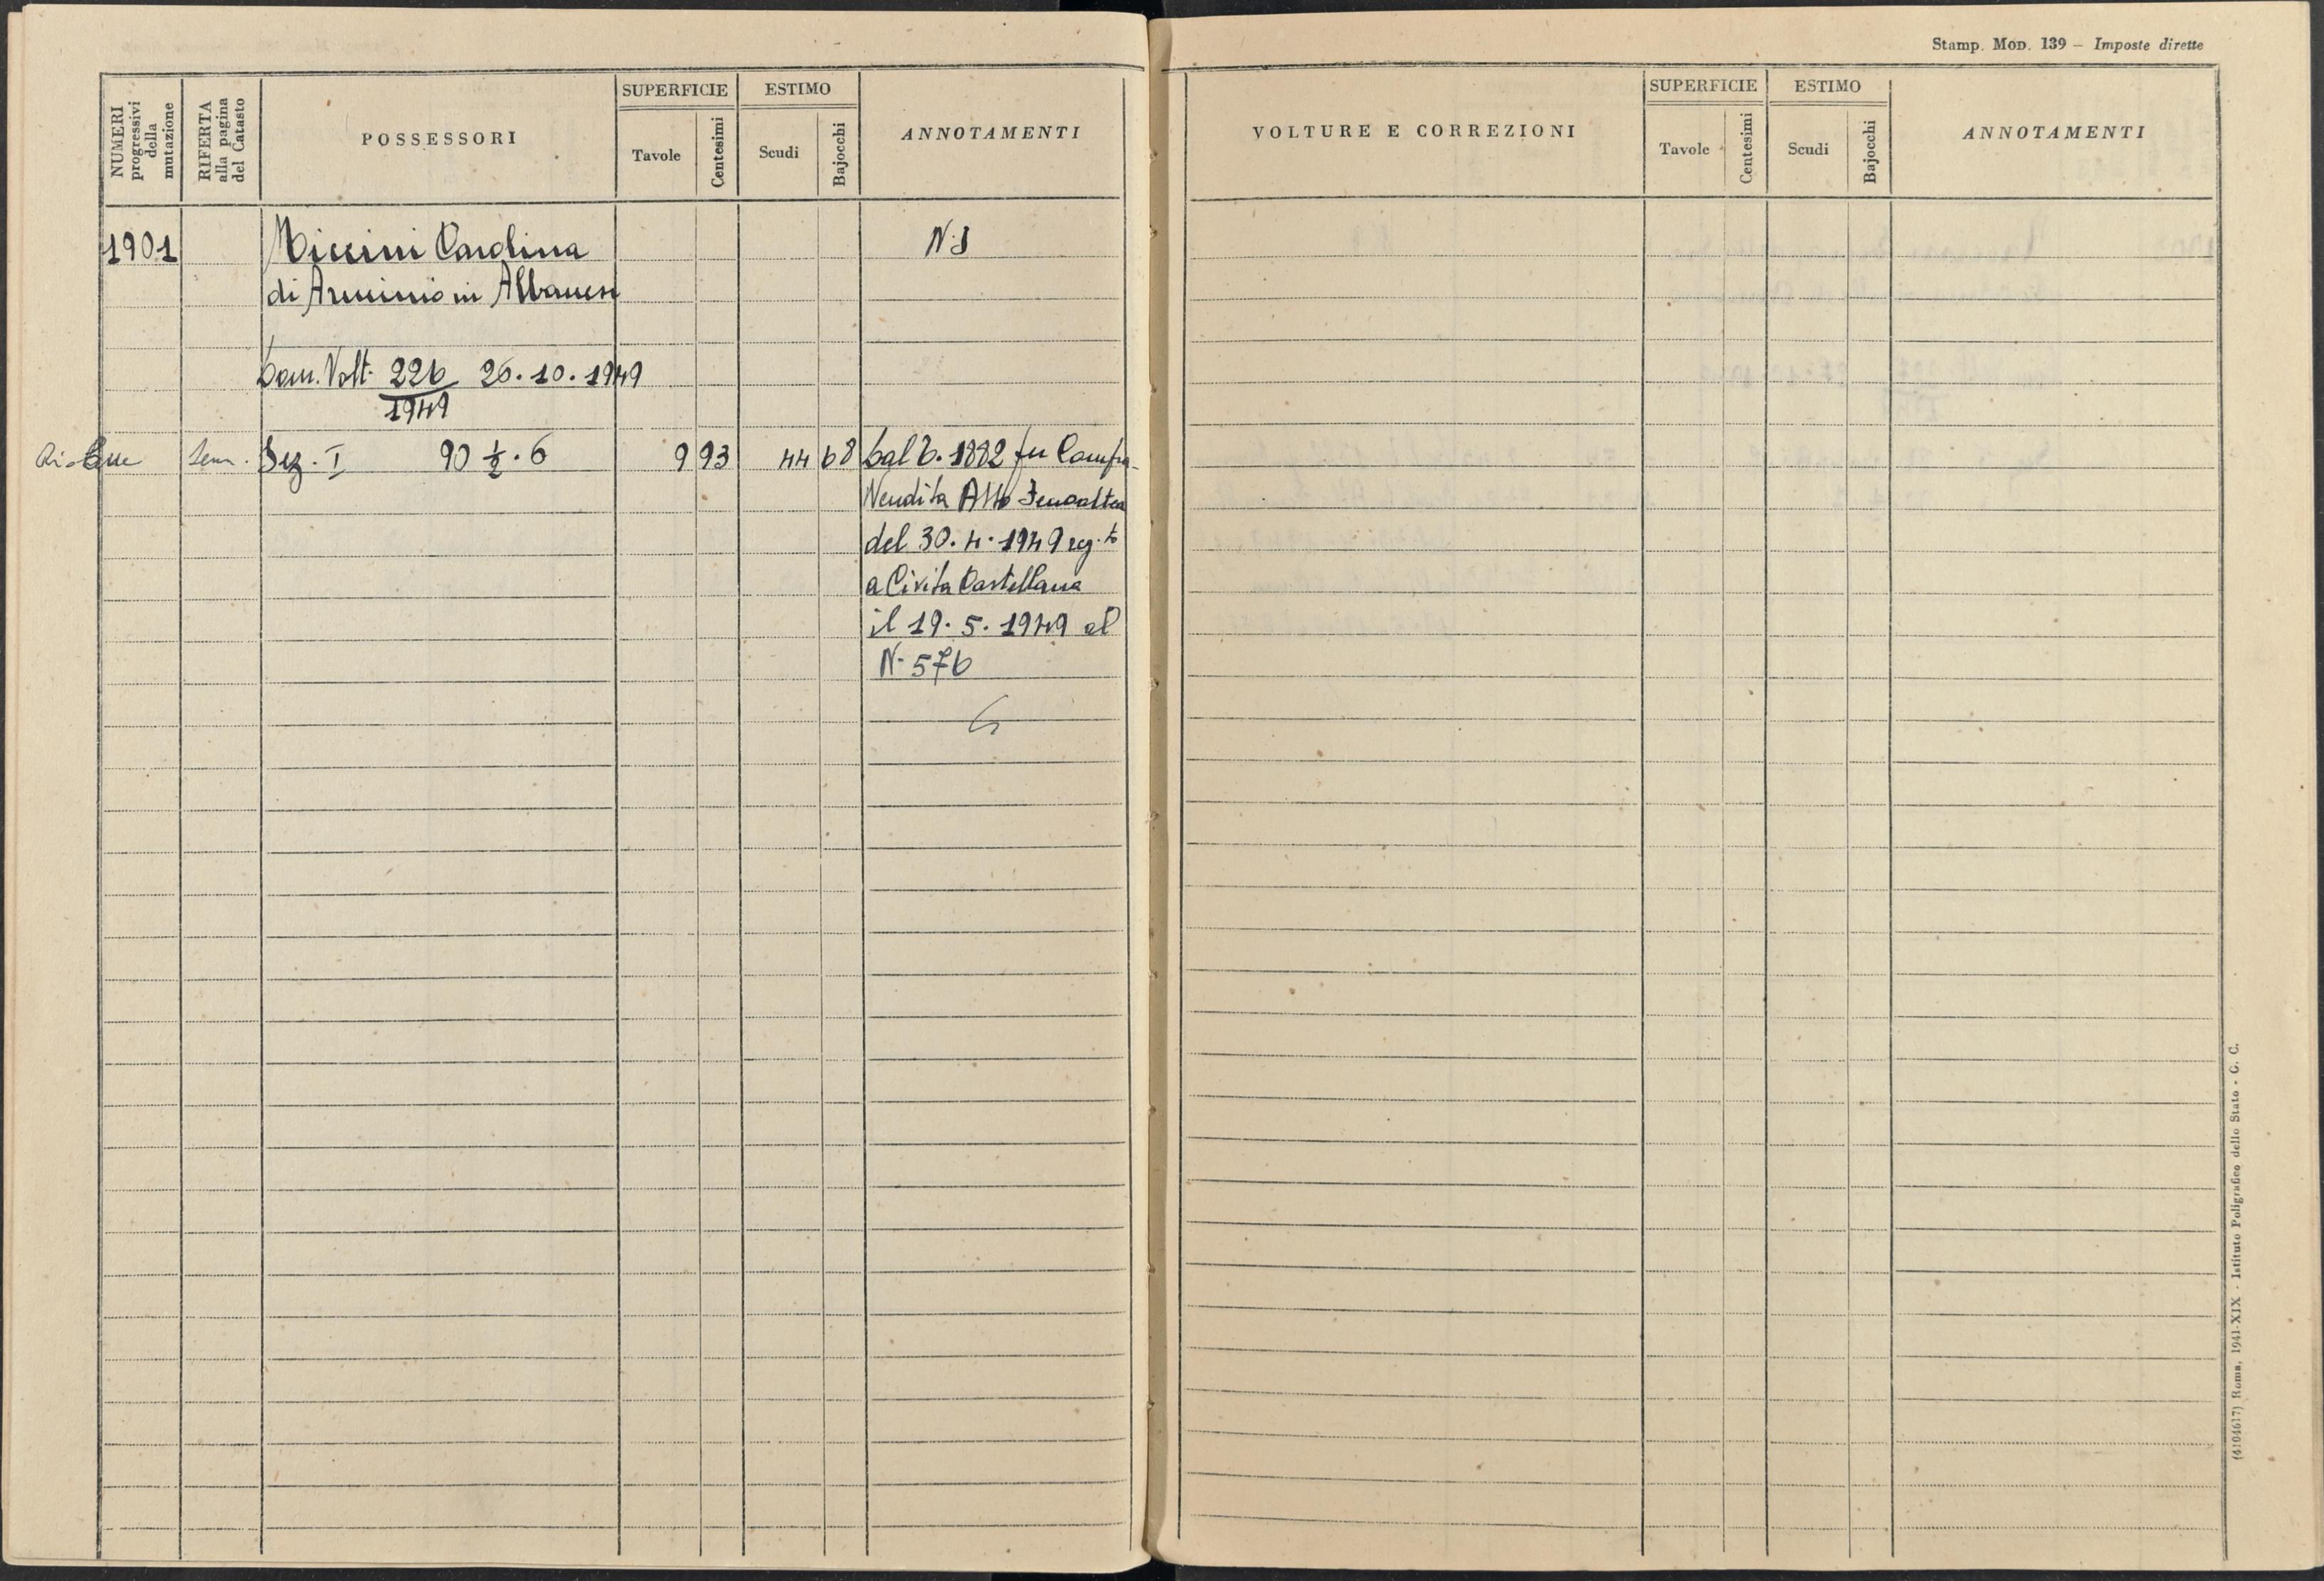 Stamp. Mod. 139 — Imposte dirette
NUMERI progressivi della mutazione
RIFERTA alla pagina del Catasto
POSSESSORI
SUPERFICIE
Tavole
Centesimi
ESTIMO
Scudi
Bajocchi
ANNOTAMENTI
VOLTURE E CORREZIONI
SUPERFICIE
Tavole
Centesimi
ESTIMO
Scudi
Bajocchi
ANNOTAMENTI
1901
Carolina
di Arminio in Albanesi
Dom. Volt. 226 26.10.1949
1949
Sem. Sez. I 90 ½.6 9 93 44 68 Dal 6. 1882 fu Compra-
Vendita Atto
del 30.4.1949 reg.to
a Civita Castellana
il 19.5.1949 al
N. 576
(4104617) Roma, 1941-XIX - Istituto Poligrafico dello Stato - G. C.